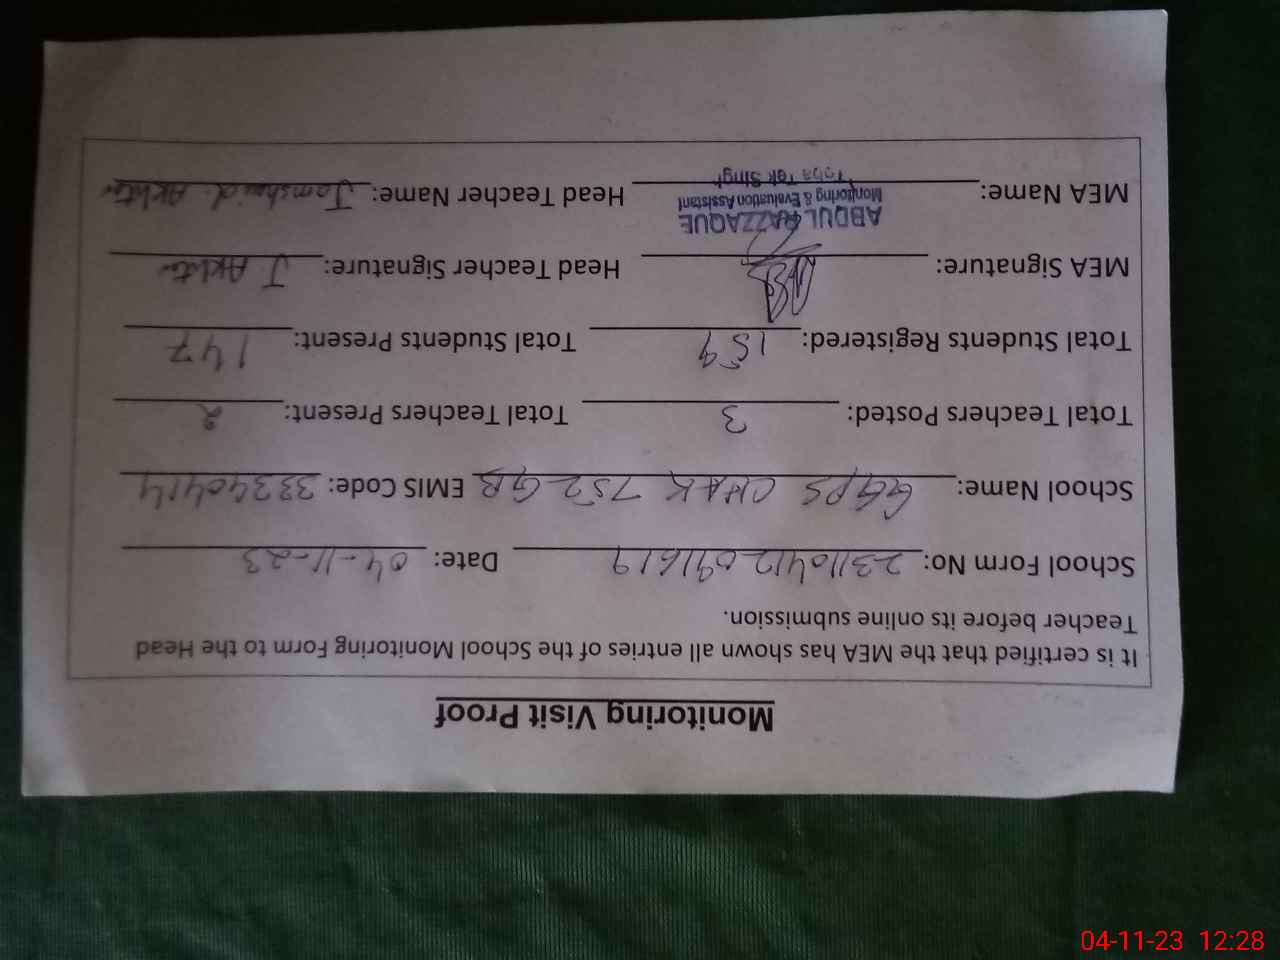 Monitoring Visit Proof
It is certified that the MEA has shown all entries of the School Monitoring Form to the Head
Teacher before its online submission.
School Form No: 231104120911619 Date: 04-11-23
School Name: GGPS CHAK 752 GB EMIS Code: 33340414
Total Teachers Posted: 3 Total Teachers Present: 2
Total Students Registered: 159 Total Students Present: 147
MEA Signature: Head Teacher Signature: J Akhter
ABDUL RAZZAQUE
Monitoring & Evaluation Assistant
Toba Tek Singh
MEA Name: Head Teacher Name: Jamshaid Akhter
04-11-23 12:28